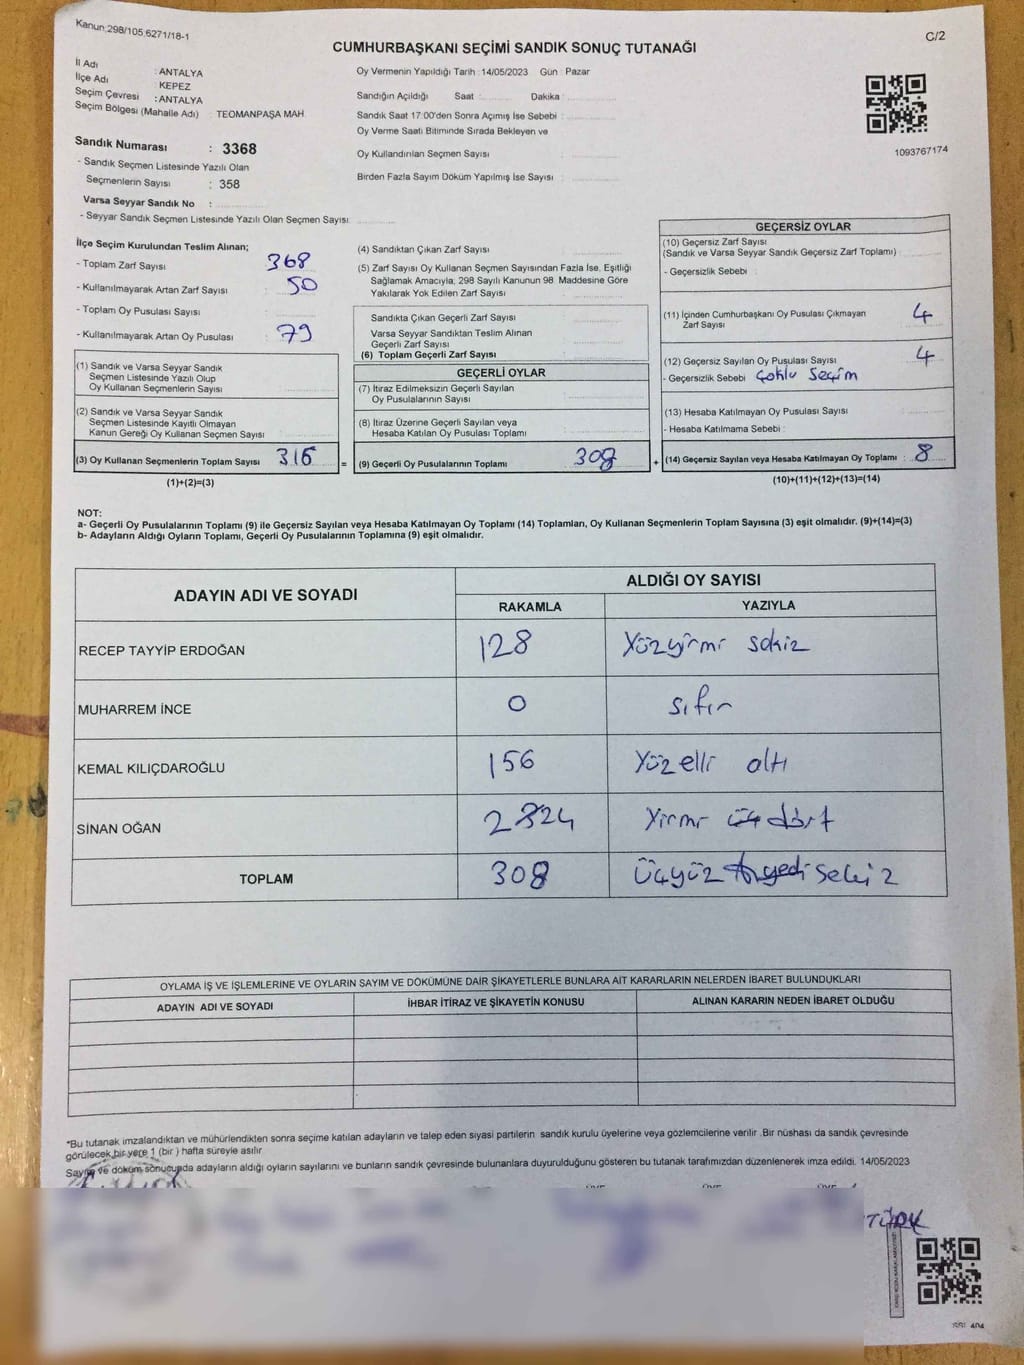 Kanun 298/105 6271/18-1
C/2
CUMHURBAŞKANI SEÇİMİ SANDIK SONUÇ TUTANAĞI
İl Adı : ANTALYA
İlçe Adı KEPEZ
Seçim Çevresi : ANTALYA
Seçim Bölgesi (Mahalle Adı) : TEOMANPAŞA MAH.
Sandık Numarası : 3368
- Sandık Seçmen Listesinde Yazılı Olan
Seçmenlerin Sayısı : 358
Varsa Seyyar Sandık No :
- Seyyar Sandık Seçmen Listesinde Yazılı Olan Seçmen Sayısı
Oy Vermenin Yapıldığı Tarih : 14/05/2023 Gün Pazar
Sandığın Açıldığı Saat Dakika
Sandık Saat 17:00'den Sonra Açımış İse Sebebi :
Oy Verme Saati Bitiminde Sırada Bekleyen ve
Oy Kullandırılan Seçmen Sayısı :
Birden Fazla Sayım Döküm Yapılmış İse Sayısı :
1093767174
İlçe Seçim Kurulundan Teslim Alınan;
- Toplam Zarf Sayısı 368
- Kullanılmayarak Artan Zarf Sayısı 50
- Toplam Oy Pusulası Sayısı :
- Kullanılmayarak Artan Oy Pusulası 79
(1) Sandık ve Varsa Seyyar Sandık
Seçmen Listesinde Yazılı Olup
Oy Kullanan Seçmenlerin Sayısı
(2) Sandık ve Varsa Seyyar Sandık
Seçmen Listesinde Kayıtlı Olmayan
Kanun Gereği Oy Kullanan Seçmen Sayısı :
(3) Oy Kullanan Seçmenlerin Toplam Sayısı 316 =
(1)+(2)=(3)
(4) Sandıktan Çıkan Zarf Sayısı
(5) Zarf Sayısı Oy Kullanan Seçmen Sayısından Fazla İse, Eşitliği
Sağlamak Amacıyla, 298 Sayılı Kanunun 98. Maddesine Göre
Yakılarak Yok Edilen Zarf Sayısı :
Sandıkta Çıkan Geçerli Zarf Sayısı
Varsa Seyyar Sandıktan Teslim Alınan
Geçerli Zarf Sayısı
(6) Toplam Geçerli Zarf Sayısı
GEÇERLİ OYLAR
(7) İtiraz Edilmeksizin Geçerli Sayılan
Oy Pusulalarının Sayısı
(8) İtiraz Üzerine Geçerli Sayılan veya
Hesaba Katılan Oy Pusulası Toplamı
(9) Geçerli Oy Pusulalarının Toplamı 308 +
GEÇERSİZ OYLAR
(10) Geçersiz Zarf Sayısı
(Sandık ve Varsa Seyyar Sandık Geçersiz Zarf Toplamı)
- Geçersizlik Sebebi :
(11) İçinden Cumhurbaşkanı Oy Pusulası Çıkmayan
Zarf Sayısı 4
(12) Geçersiz Sayılan Oy Pusulası Sayısı 4
- Geçersizlik Sebebi çoklu seçim
(13) Hesaba Katılmayan Oy Pusulası Sayısı
- Hesaba Katılmama Sebebi :
(14) Geçersiz Sayılan veya Hesaba Katılmayan Oy Toplamı : 8
(10)+(11)+(12)+(13)=(14)
NOT:
a- Geçerli Oy Pusulalarının Toplamı (9) ile Geçersiz Sayılan veya Hesaba Katılmayan Oy Toplamı (14) Toplamları, Oy Kullanan Seçmenlerin Toplam Sayısına (3) eşit olmalıdır. (9)+(14)=(3)
b- Adayların Aldığı Oyların Toplamı, Geçerli Oy Pusulalarının Toplamına (9) eşit olmalıdır.
ADAYIN ADI VE SOYADI ALDIĞI OY SAYISI
RAKAMLA YAZIYLA
RECEP TAYYİP ERDOĞAN 128 Yüzyirmi sekiz
MUHARREM İNCE 0 sıfır
KEMAL KILIÇDAROĞLU 156 Yüz elli altı
SİNAN OĞAN 2324 Yirmi üç dört
TOPLAM 308 Üçyüz yedi sekiz
OYLAMA İŞ VE İŞLEMLERİNE VE OYLARIN SAYIM VE DÖKÜMÜNE DAİR ŞİKAYETLERLE BUNLARA AİT KARARLARIN NELERDEN İBARET BULUNDUKLARI
ADAYIN ADI VE SOYADI İHBAR İTİRAZ VE ŞİKAYETİN KONUSU ALINAN KARARIN NEDEN İBARET OLDUĞU
*Bu tutanak imzalandıktan ve mühürlendikten sonra seçime katılan adayların ve talep eden siyasi partilerin sandık kurulu üyelerine veya gözlemcilerine verilir .Bir nüshası da sandık çevresinde
görülecek bir yere 1 (bir ) hafta süreyle asılır.
Sayım ve döküm sonucunda adayların aldığı oyların sayılarını ve bunların sandık çevresinde bulunanlara duyurulduğunu gösteren bu tutanak tarafımızdan düzenlenerek imza edildi. 14/05/2023
TÜRK